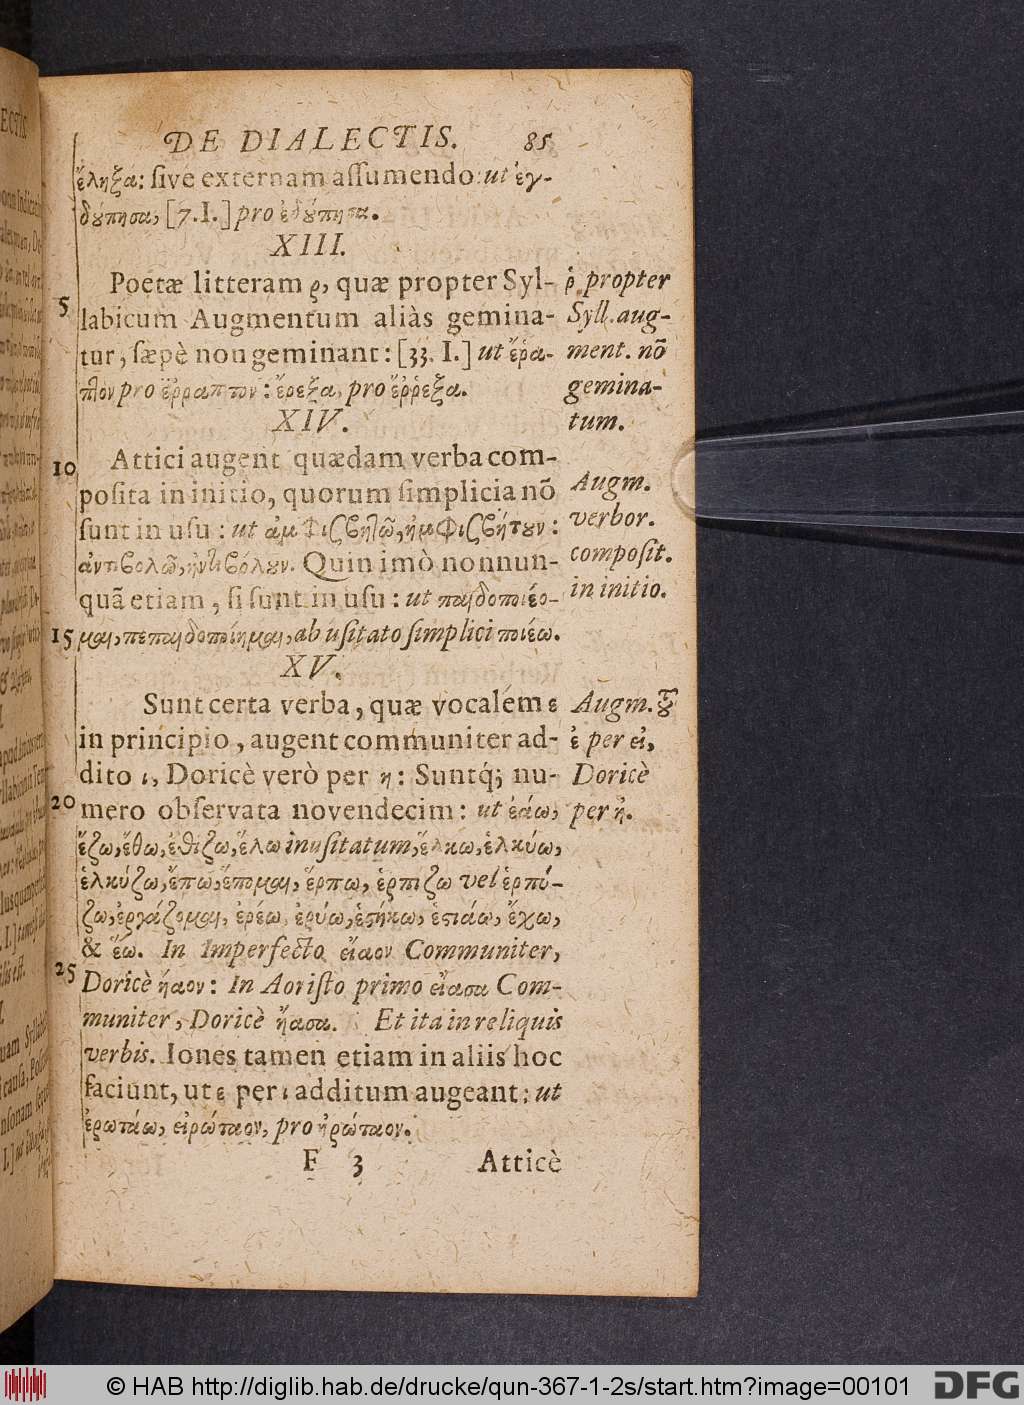 DE DIALECTIS. 85
ἔληξα: ſive externam aſſumendo: ut ἐγ-
δȣ́πησα, [7. I.] pro ἐδȣ́πησα.
XIII.
Poetæ litteram ρ, quæ propter Syl-
5 labicum Augmentum aliàs gemina-
tur, ſæpè non geminant: [33. I.] ut ἔρα-
πτον pro ἔῤῥαπτον: ἔρεξα, pro ἔῤῥεξα.
ῥ propter
Syll. aug-
ment. nō
gemina-
tum.
XIV.
10 Attici augent quædam verba com-
poſita in initio, quorum ſimplicia nō
ſunt in uſu: ut ἀμφισβητῶ, ἠμφισβήτȣν:
ἀντιβολῶ, ἠντιβόλȣν. Quin imò nonnun-
quā etiam, ſi ſunt in uſu: ut παιδοποιέο-
15 μαι, πεπαιδοποίημαι, ab uſitato ſimplici ποιέω.
Augm.
verbor.
compoſit.
in initio.
XV.
Sunt certa verba, quæ vocalem ε
in principio, augent communiter ad-
dito ι, Doricè verò per η: Suntq́; nu-
20 mero obſervata novendecim: ut ἐάω,
ἕζω, ἔθω, ἐθίζω, ἕλω inuſitatum, ἕλκω, ἑλκύω,
ἑλκύζω, ἕπω, ἕπομαι, ἕρπω, ἑρπίζω vel ἑρπύ-
ζω, ἐργάζομαι, ἐρέω, ἐρύω, ἑστήκω, ἑστιάω, ἔχω,
& ἕω. In Imperfecto εἴαον Communiter,
25 Doricè ἤαον: In Aoriſto primo εἴασα Com-
muniter, Doricè ἤασα. Et ita in reliquis
verbis. Iones tamen etiam in aliis hoc
faciunt, ut ε per ι additum augeant: ut
ἐρωτάω, εἰρώταον, pro ἠρώταον.
Augm. τȣ͂
ἐ per εἰ,
Doricè
per ἠ.
F 3 Atticè
© HAB http://diglib.hab.de/drucke/qun-367-1-2s/start.htm?image=00101 DFG